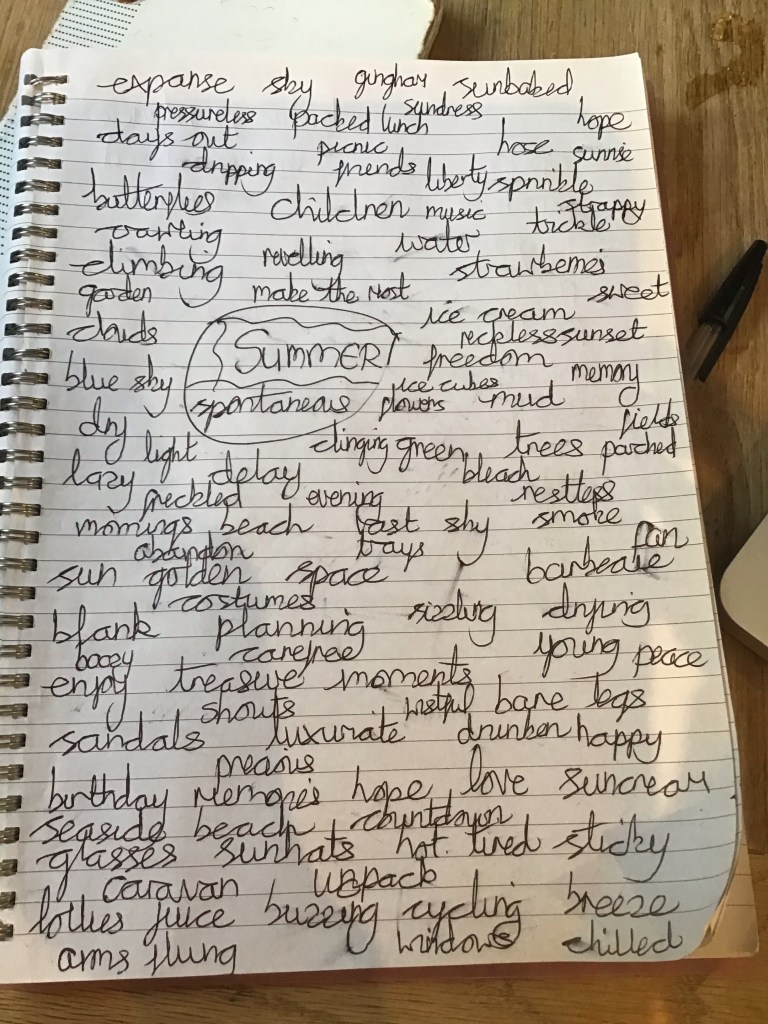 expanse sky gingham sunbaked
pressureless packed lunch sundress hope
days out picnic hose sunrise
dripping friends liberty sprinkle
butterflies children music strappy
water tickle
climbing revelling strawberries
garden make the most sweet
clouds ice cream
reckless sunset
SUMMER freedom
blue sky ice cubes memory
spontaneous flowers mud
dry fields
light clinging green trees parched
lazy delay bleach
freckled evening restless
mornings beach fast sky smoke
abandon trays fan
sun golden space barbecue
costumes
blank planning sizzling drying
boozy carefree young peace
enjoy treasure moments
shouts wistful bare legs
sandals luxuriate drunken happy
precious
birthday memories hope love suncream
seaside beach countdown
glasses sunhats hot tired sticky
caravan unpack
lollies juice buzzing cycling breeze
arms flung windows chilled